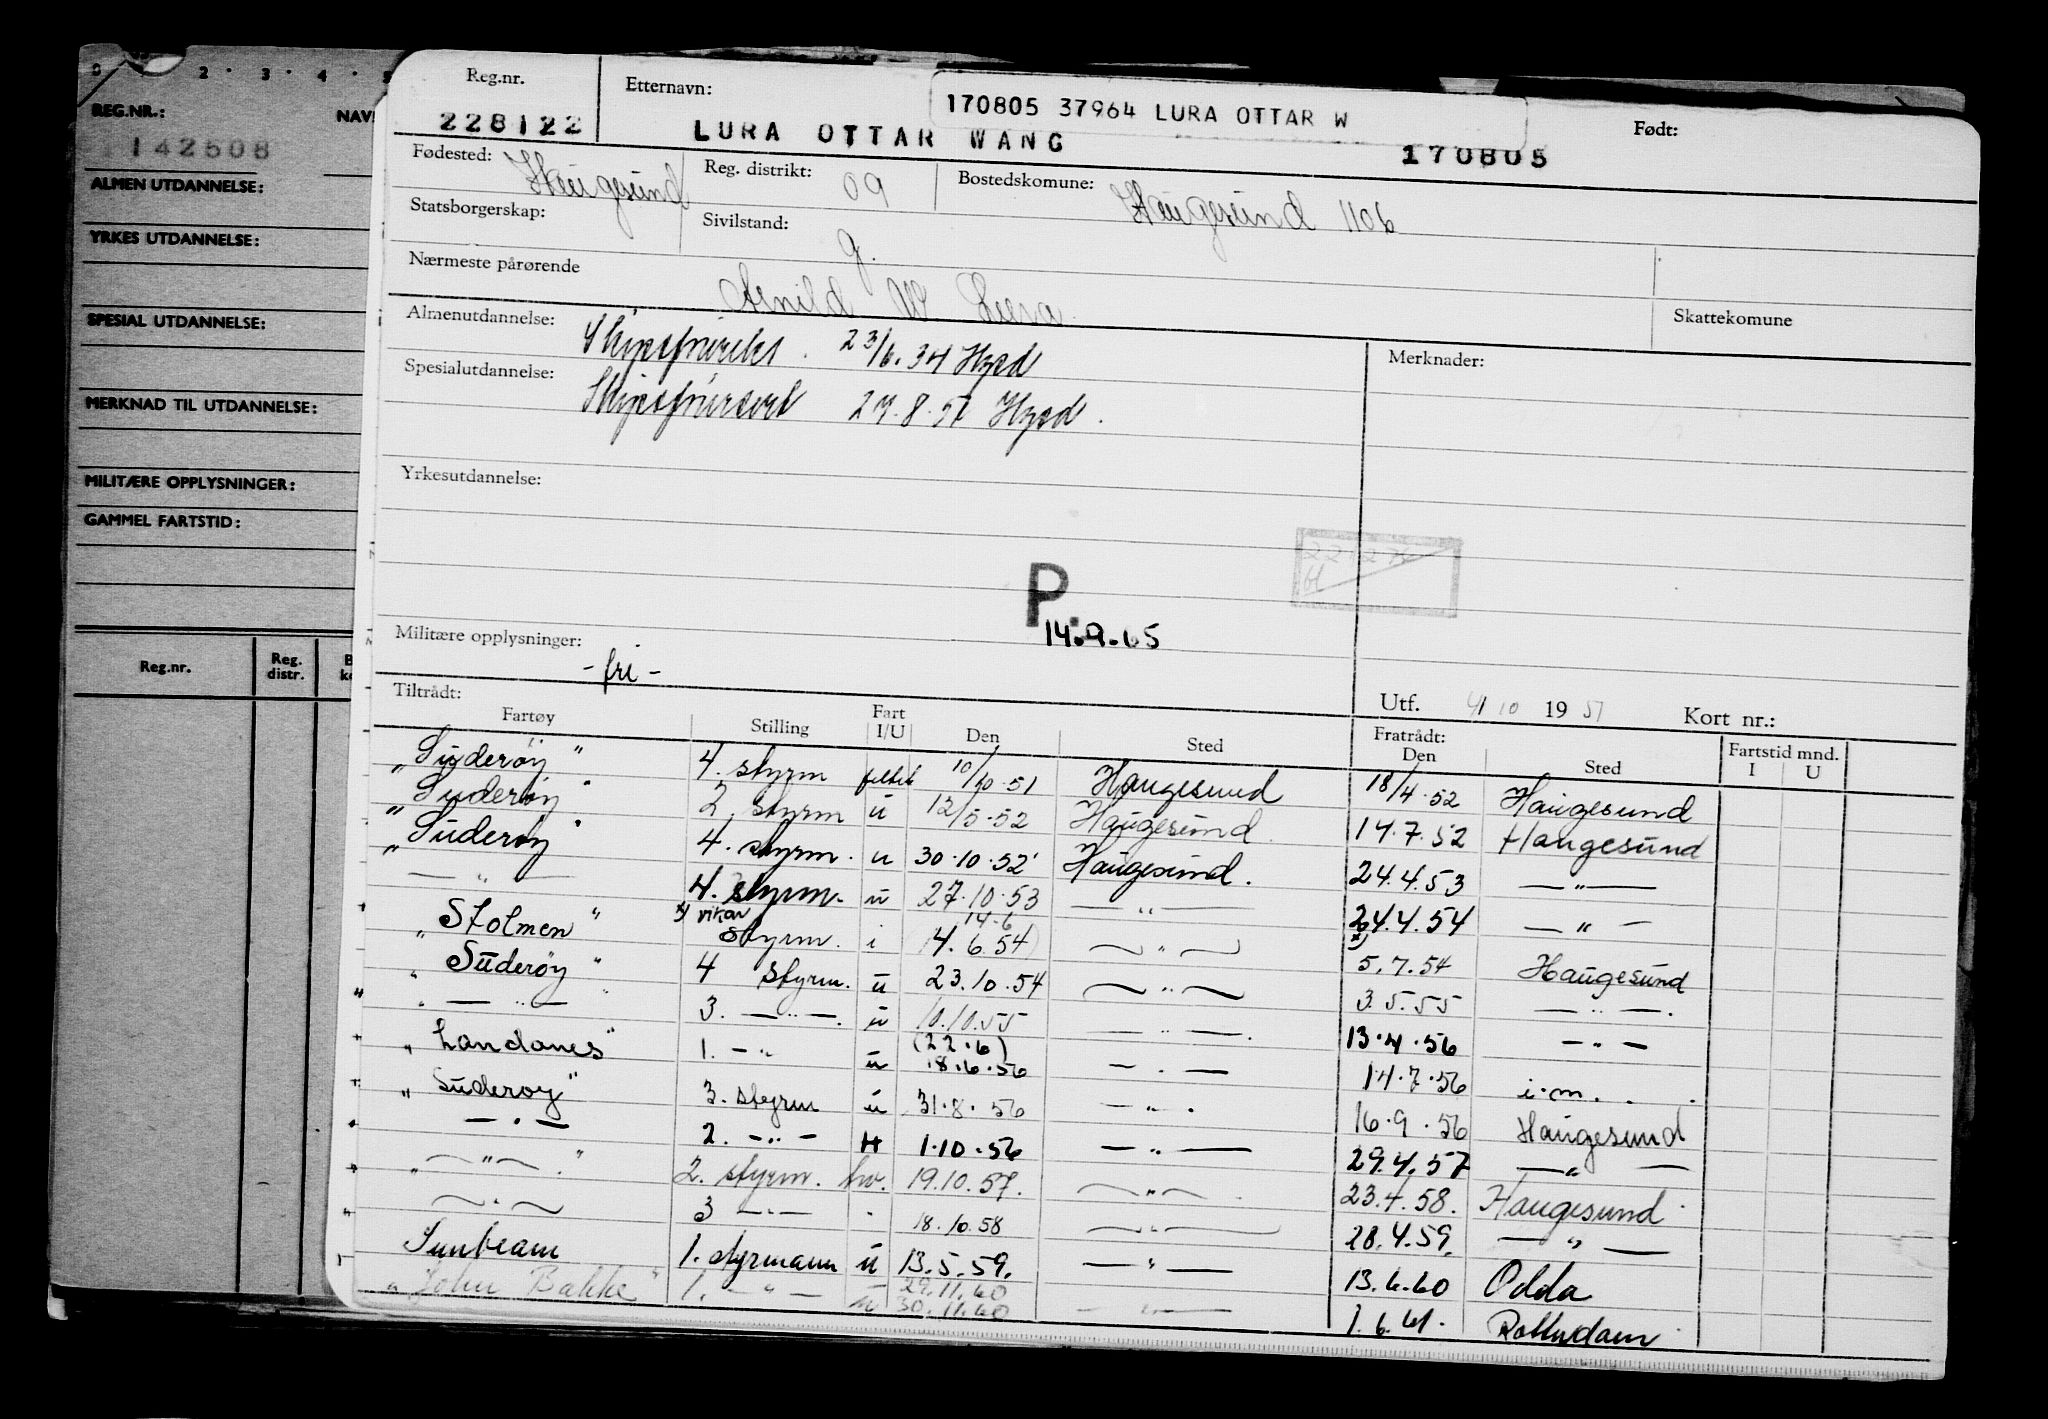 0 · 2 · 3 · 4 · 5
REG.NR.: NAV
142508
ALMEN UTDANNELSE:
YRKES UTDANNELSE:
SPESIAL UTDANNELSE:
MERKNAD TIL UTDANNELSE:
MILITÆRE OPPLYSNINGER:
GAMMEL FARTSTID:
Reg.nr. Reg. distr.
Reg.nr. Etternavn: 170805 37964 LURA OTTAR W Født:
228122 LURA OTTAR WANG 170805
Fødested: Haugesund Reg. distrikt: 09 Bostedskomune: Haugesund 1106
Statsborgerskap: Sivilstand: g.
Nærmeste pårørende W Lura
Almenutdannelse: 23/6.34 Hgsd Skattekomune
Spesialutdannelse: Hgsd. Merknader:
Yrkesutdannelse:
P.
14.9.65
Militære opplysninger: - fri -
Tiltrådt: Utf. 4/10 1951 Kort nr.:
Fartøy Stilling Fart I/U Den Sted Fratrådt: Den Sted Fartstid mnd. I U
"Suderøy" 4. styrm 10/10.51 Haugesund 18/4.52 Haugesund
"Suderøy" 2. styrm u 12/5.52 Haugesund 14.7.52 Haugesund
"Suderøy" 4. styrm. u 30.10.52 Haugesund. 24.4.53 — " —
— " — 4. styrm. u 27.10.53 — " — 24.4.54 — " —
"Stolmen" x) vikar styrm. i 14.6 4.6.54 — " — x) 5.7.54 Haugesund
"Suderøy" 4 styrm. u 23.10.54 — " — 3.5.55 — " —
" — " — " 3. — " —. u 10.10.55 — " —. 13.4.56 — " —
"Landanes" 1. — " u (22.6) 18.6.56 — . — 14.7.56 i.m.
"Suderøy" 3. styrm u 31.8.56 — " . 16.9.56 Haugesund
— " — 2. — " — H 1.10.56 — " — 29.4.57 — " —
" — " — " 2. styrm. hv. 19.10.57. — " — 23.4.58. Haugesund
— " — 3 — " — 18.10.58 — " — 28.4.59. — " —
Sunbeam 1. styrmann u 13.5.59. — " — 13.6.60 Odda
"John Bakke" 1. — " — u 29.11.60 30.11.60 — " — 1.6.61. Rotterdam